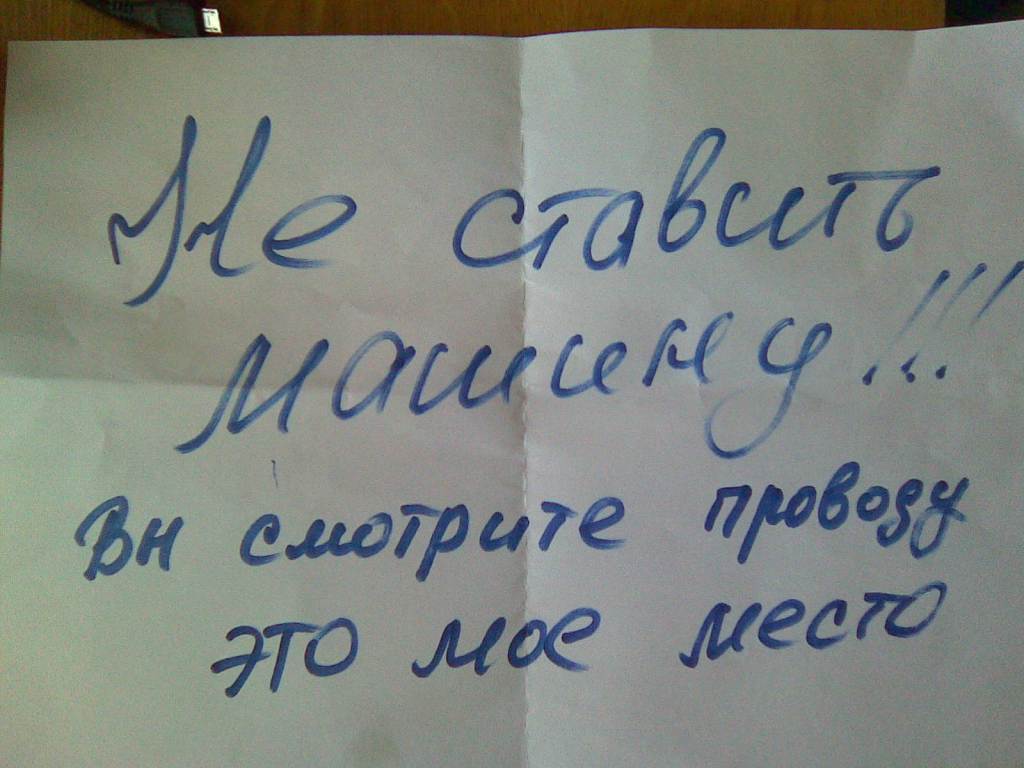 Не ставить
машину!!!
Вн смотрите проводу
это мое место